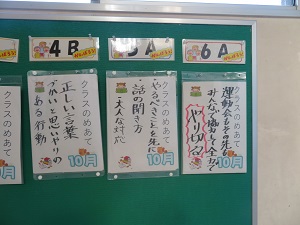 4B
クラスのめあて
正しい言葉
づかいと思いやりの
ある行動
10月
5A
クラスのめあて
・やるべきことを先に
・話の聞き方
・大人な対応
10月
6A
クラスのめあて
運動会もその先も
みんなで協力して全力で
やりきる
10月
クラスのめあて